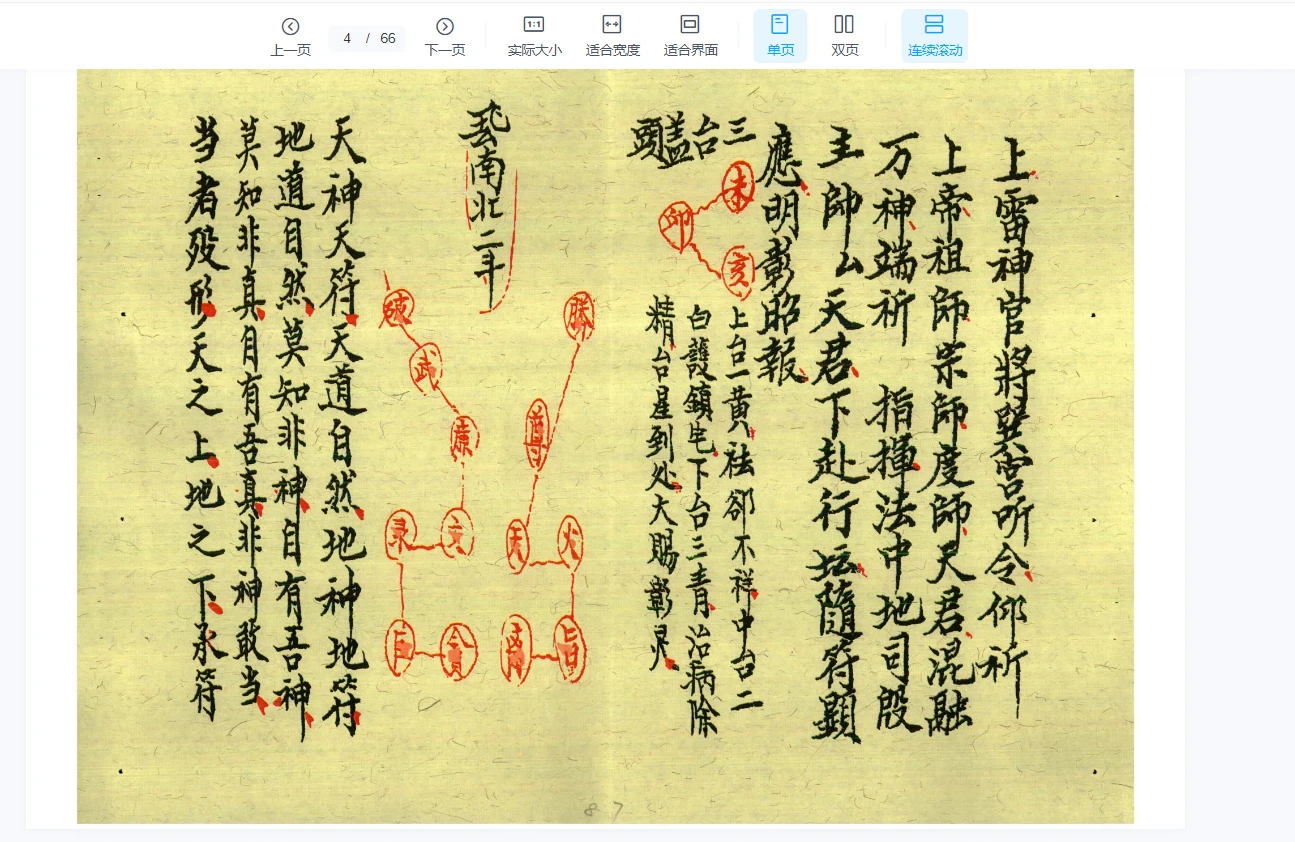 上一页
4 / 66
下一页
1:1
实际大小
适合宽度
适合界面
单页
双页
连续滚动
上雷神官將 听令仰祈
上帝祖師宗師度師天君混融
万神端祈 指揮法中地司殷
主帥厶天君下赴行坛隨符顯
應明彰昭報
三台盖頭
未
卯
亥
上台一黄祛卻不祥中台二
白護鎮宅下台三青治病除
精台星到处大賜彰灵
南北二斗
勝
尊
天
火
旨
破
武
廉
文
录
巨
貪
天神天符天道自然地神地符
地道自然莫知非神自有吾神
莫知非真自有吾真非神敢当
当者殁形天之上地之下承符
8 7